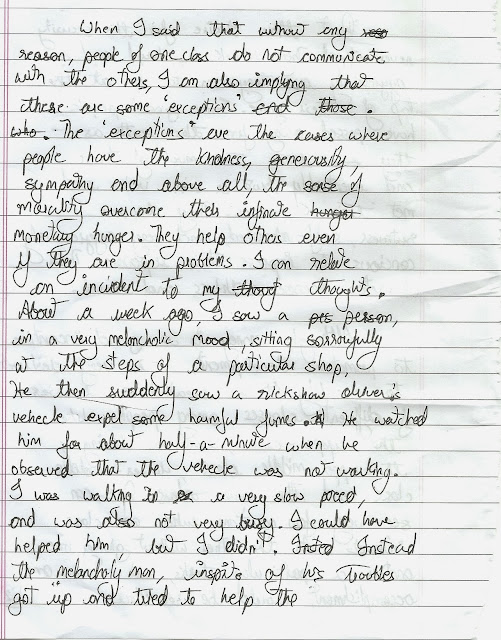 When I said that without any
reason, people of one class do not communicate
with the others, I am also implying that
there are some 'exceptions' and those.
who. The 'exceptions' are the cases where
people have the kindness, generousity,
sympathy and above all, the sense of
morality overcome their infinate hunger
monetary hunger. They help others even
if they are in problems. I can relate
an incident to my thout thoughts.
About a week ago, I saw a prs person,
in a very melancholic mood, sitting sorroyfully
at the steps of a particular shop,
He then suddenly saw a rickshaw driver's
vehecle expel some harmful fumes. He watched
him for about half-a-minute when he
observed that the vehecle was not working.
I was walking in a very slow paced,
and was also not very busy. I could have
helped him, but I didn't. Insted Instead
the melancholy man, inspite of his troubles
got up and tried to help the